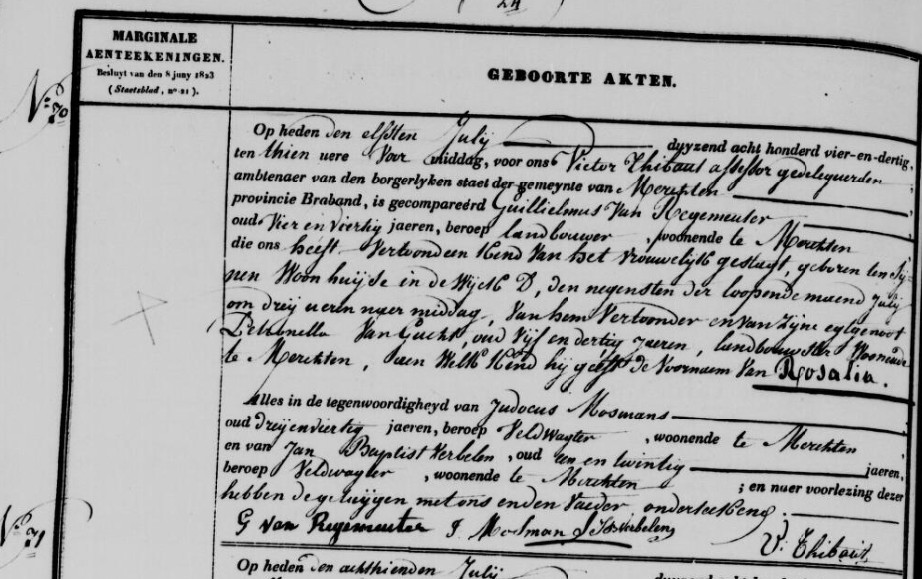 24
MARGINALE
AENTEEKENINGEN.
Besluyt van den 8 juny 1823
(Staetsblad, n° 21).
GEBOORTE AKTEN.
N° 70
Op heden den elfsten July duyzend acht honderd vier-en-dertig,
ten thien uere Voor middag, voor ons Victor Thibaut assessor gedelegueerden
ambtenaer van den borgerlyken staet der gemeynte van Merchten
provincie Braband, is gecompareérd Guillielmus Van Regemeuter
oud Vier en viertig jaeren, beroep landbouwer, woonende te Merchten
die ons heeft Vertoond een Kend Van het vrouwelijk geslagt, geboren ten Sy-
nen Woonhuijse in de Wijck D, den negensten der loopende maend July
om dreij ueren naer middag, Van hem Vertoonder en van zijne egtgenoot
Petronella Van Gucht, oud Vijf en dertig jaeren, landbouwster Woonende
te Merchten, aen Welk Kend hij geeft de Voornaem Van Rosalia.
Alles in de tegenwoordigheyd van Judocus Mosmans
oud dreijenviertig jaeren, beroep Veldwagter, woonende te Merchten
en van Jan Baptist Verbelen, oud een en twintig jaeren,
beroep Veldwagter, woonende te Merchten; en naer voorlezing dezer
hebben de getuijgen met ons en den Vaeder onderteekend.
G Van Regemeuter J. Mosmans JB Verbelen
V: Thibaut
N° 71
Op heden den achthienden July